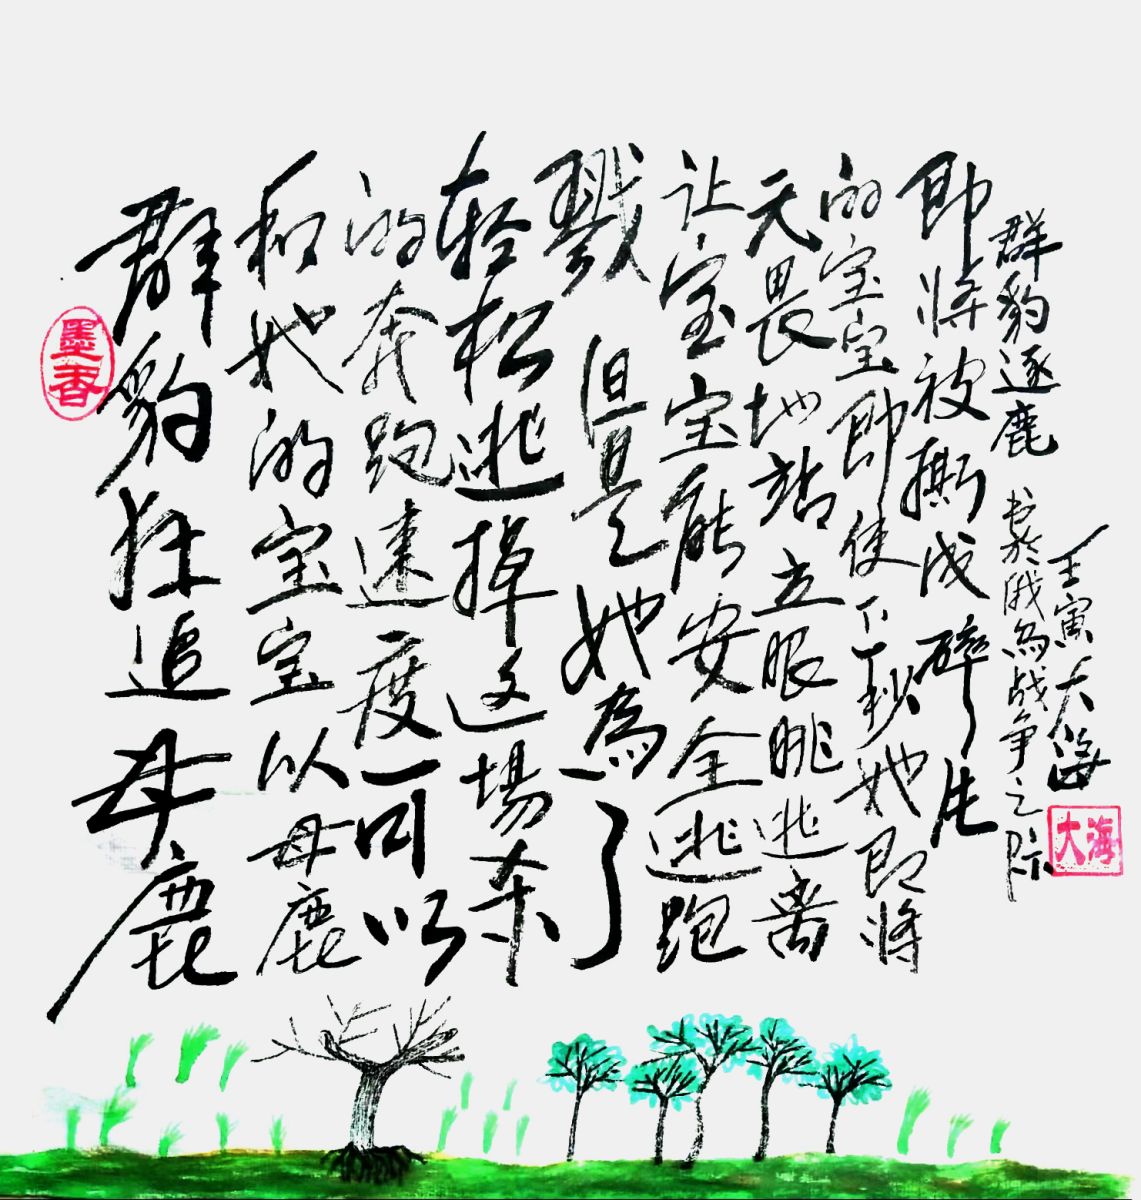 墨香
群豹狂追母鹿
和她的宝宝以母鹿
的奔跑速度可以
轻松逃掉这場杀
戮但是她為了
让宝宝能安全逃跑
无畏地站立眼眺逃离
的宝宝即使下一秒她即将
即将被撕成碎片
群豹逐鹿 书於俄乌战争之际
壬寅大海
大海